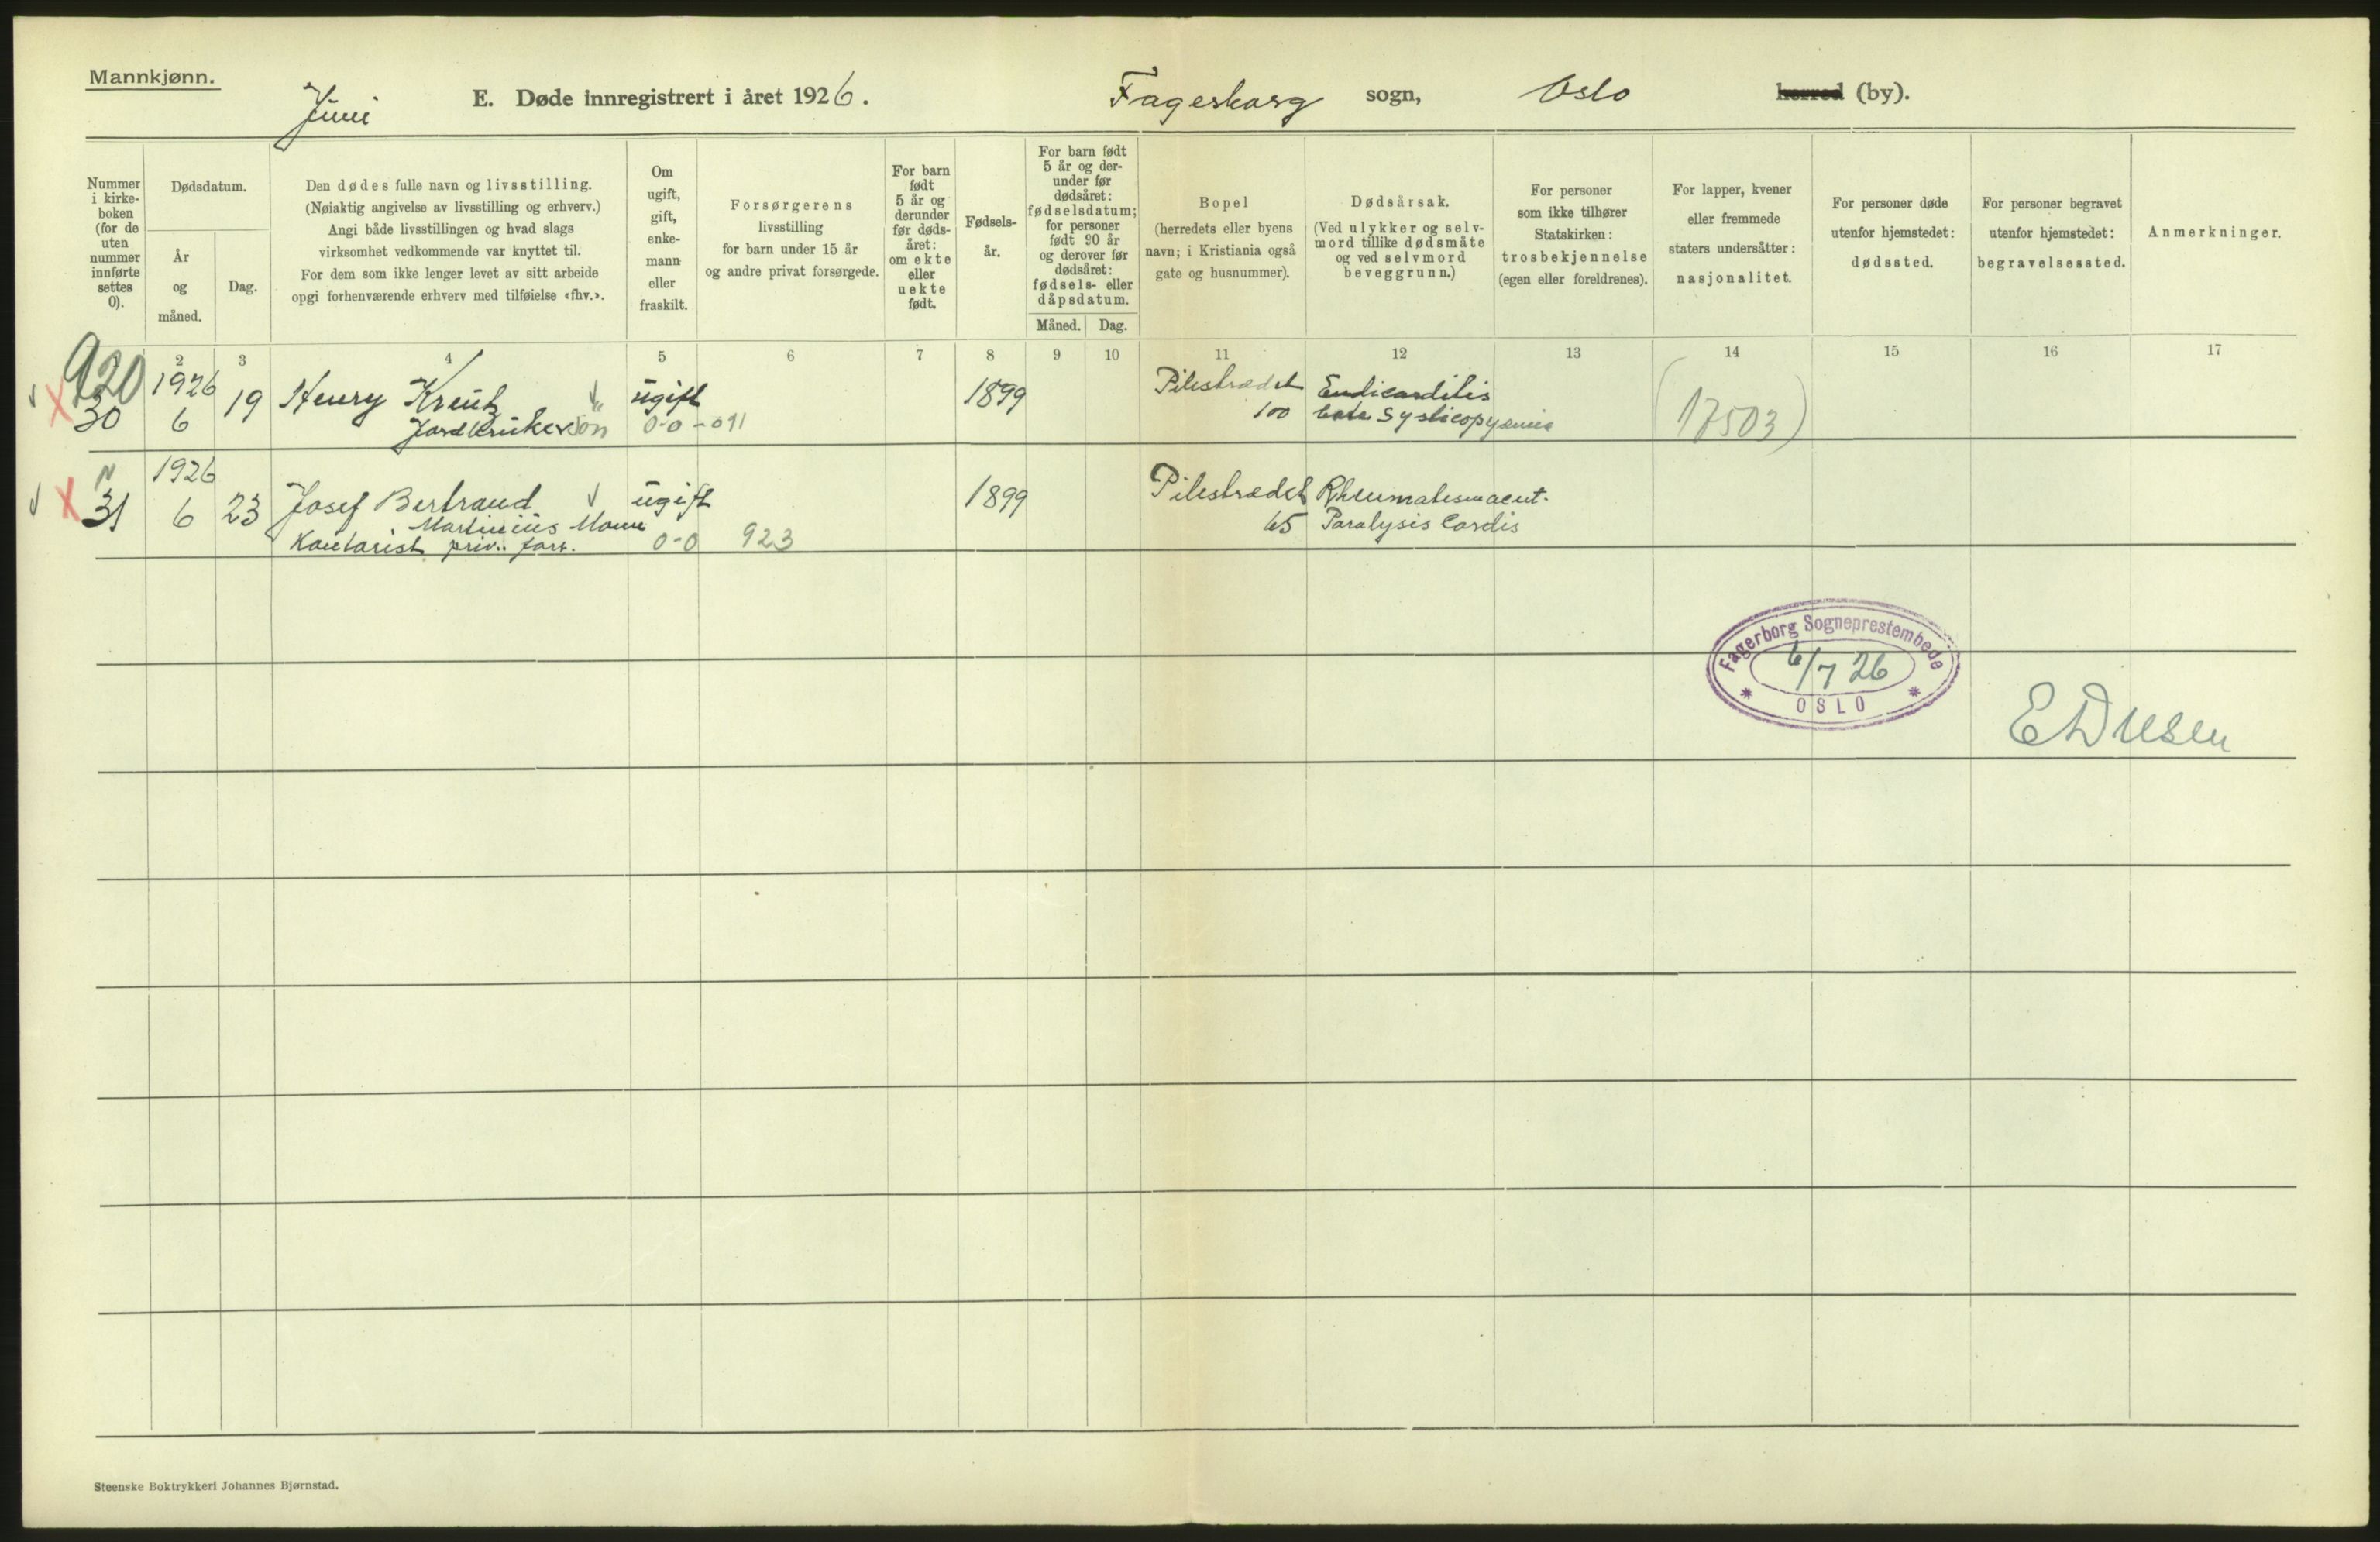 Mannkjønn.
Juni
E. Døde innregistrert i året 1926.
Fagerborg sogn, Oslo herred (by).
Nummer i kirke-boken (for de uten nummer innførte settes 0).
Dødsdatum.
År og måned.
Dag.
Den dødes fulle navn og livsstilling.
(Nøiaktig angivelse av livsstilling og erhverv.)
Angi både livsstillingen og hvad slags
virksomhet vedkommende var knyttet til.
For dem som ikke lenger levet av sitt arbeide
opgi forhenværende erhverv med tilføielse «fhv.».
Om ugift, gift, enke-mann eller fraskilt.
Forsørgerens
livsstilling
for barn under 15 år
og andre privat forsørgede.
For barn født 5 år og derunder før døds-året: om ekte eller uekte født.
Fødsels-år.
For barn født 5 år og der-under før dødsåret: fødselsdatum; for personer født 90 år og derover før dødsåret: fødsels- eller dåpsdatum.
Måned. Dag.
Bopel
(herredets eller byens
navn; i Kristiania også
gate og husnummer).
Dødsårsak.
(Ved ulykker og selv-
mord tillike dødsmåte
og ved selvmord
beveggrunn.)
For personer
som ikke tilhører
Statskirken:
trosbekjennelse
(egen eller foreldrenes).
For lapper, kvener
eller fremmede
staters undersåtter:
nasjonalitet.
For personer døde
utenfor hjemstedet:
dødssted.
For personer begravet
utenfor hjemstedet:
begravelsessted.
Anmerkninger.
2 3 4 5 6 7 8 9 10 11 12 13 14 15 16 17
920
1926 19 Henry Kreutz ugift 1899 Pilestrædet Endicarditis
30 6 Jordbruker søn 0-0-011 100 (17503)
N 1926
31 6 23 Josef Bertrand ugift 1899 Pilestrædet Rheumatism acut.
Martinius Moune
Kontorist priv. forr. 0-0 923 65 Paralysis Cordis
Fagerborg Sogneprestembede
6/7 26
* OSLO *
Steenske Boktrykkeri Johannes Bjørnstad.